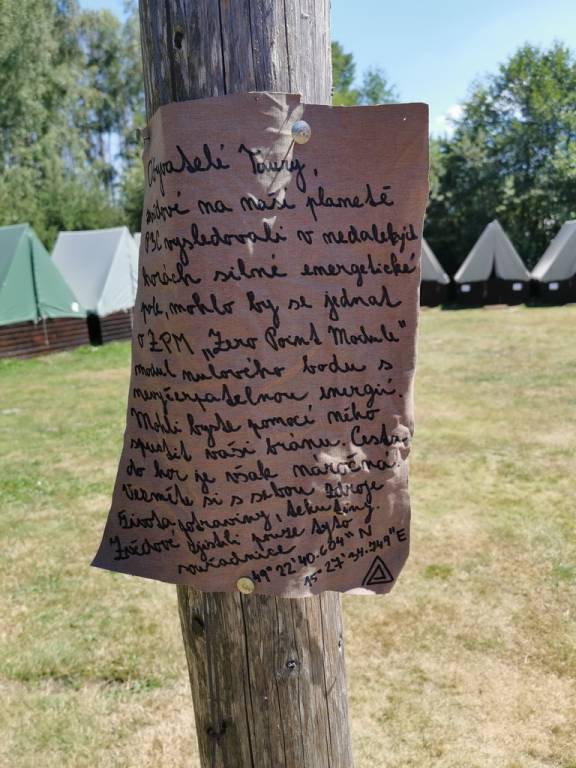 Obyvatelé Taury,
zvědové na naší planetě
P3C vysledovali v nedalekých
horách silné energetické
pole, mohlo by se jednat
o ZPM „Zero Point Module“
modul nulového bodu s
nevyčerpatelnou energií.
Mohli byste pomocí něho
spustit vaši bránu. Cesta
do hor je však náročná.
Vezměte si s sebou zdroje
života potraviny, tekutiny.
Zvědové zjistili pouze tyto
souřadnice
49°22'40.604"N
15°27'34.949"E